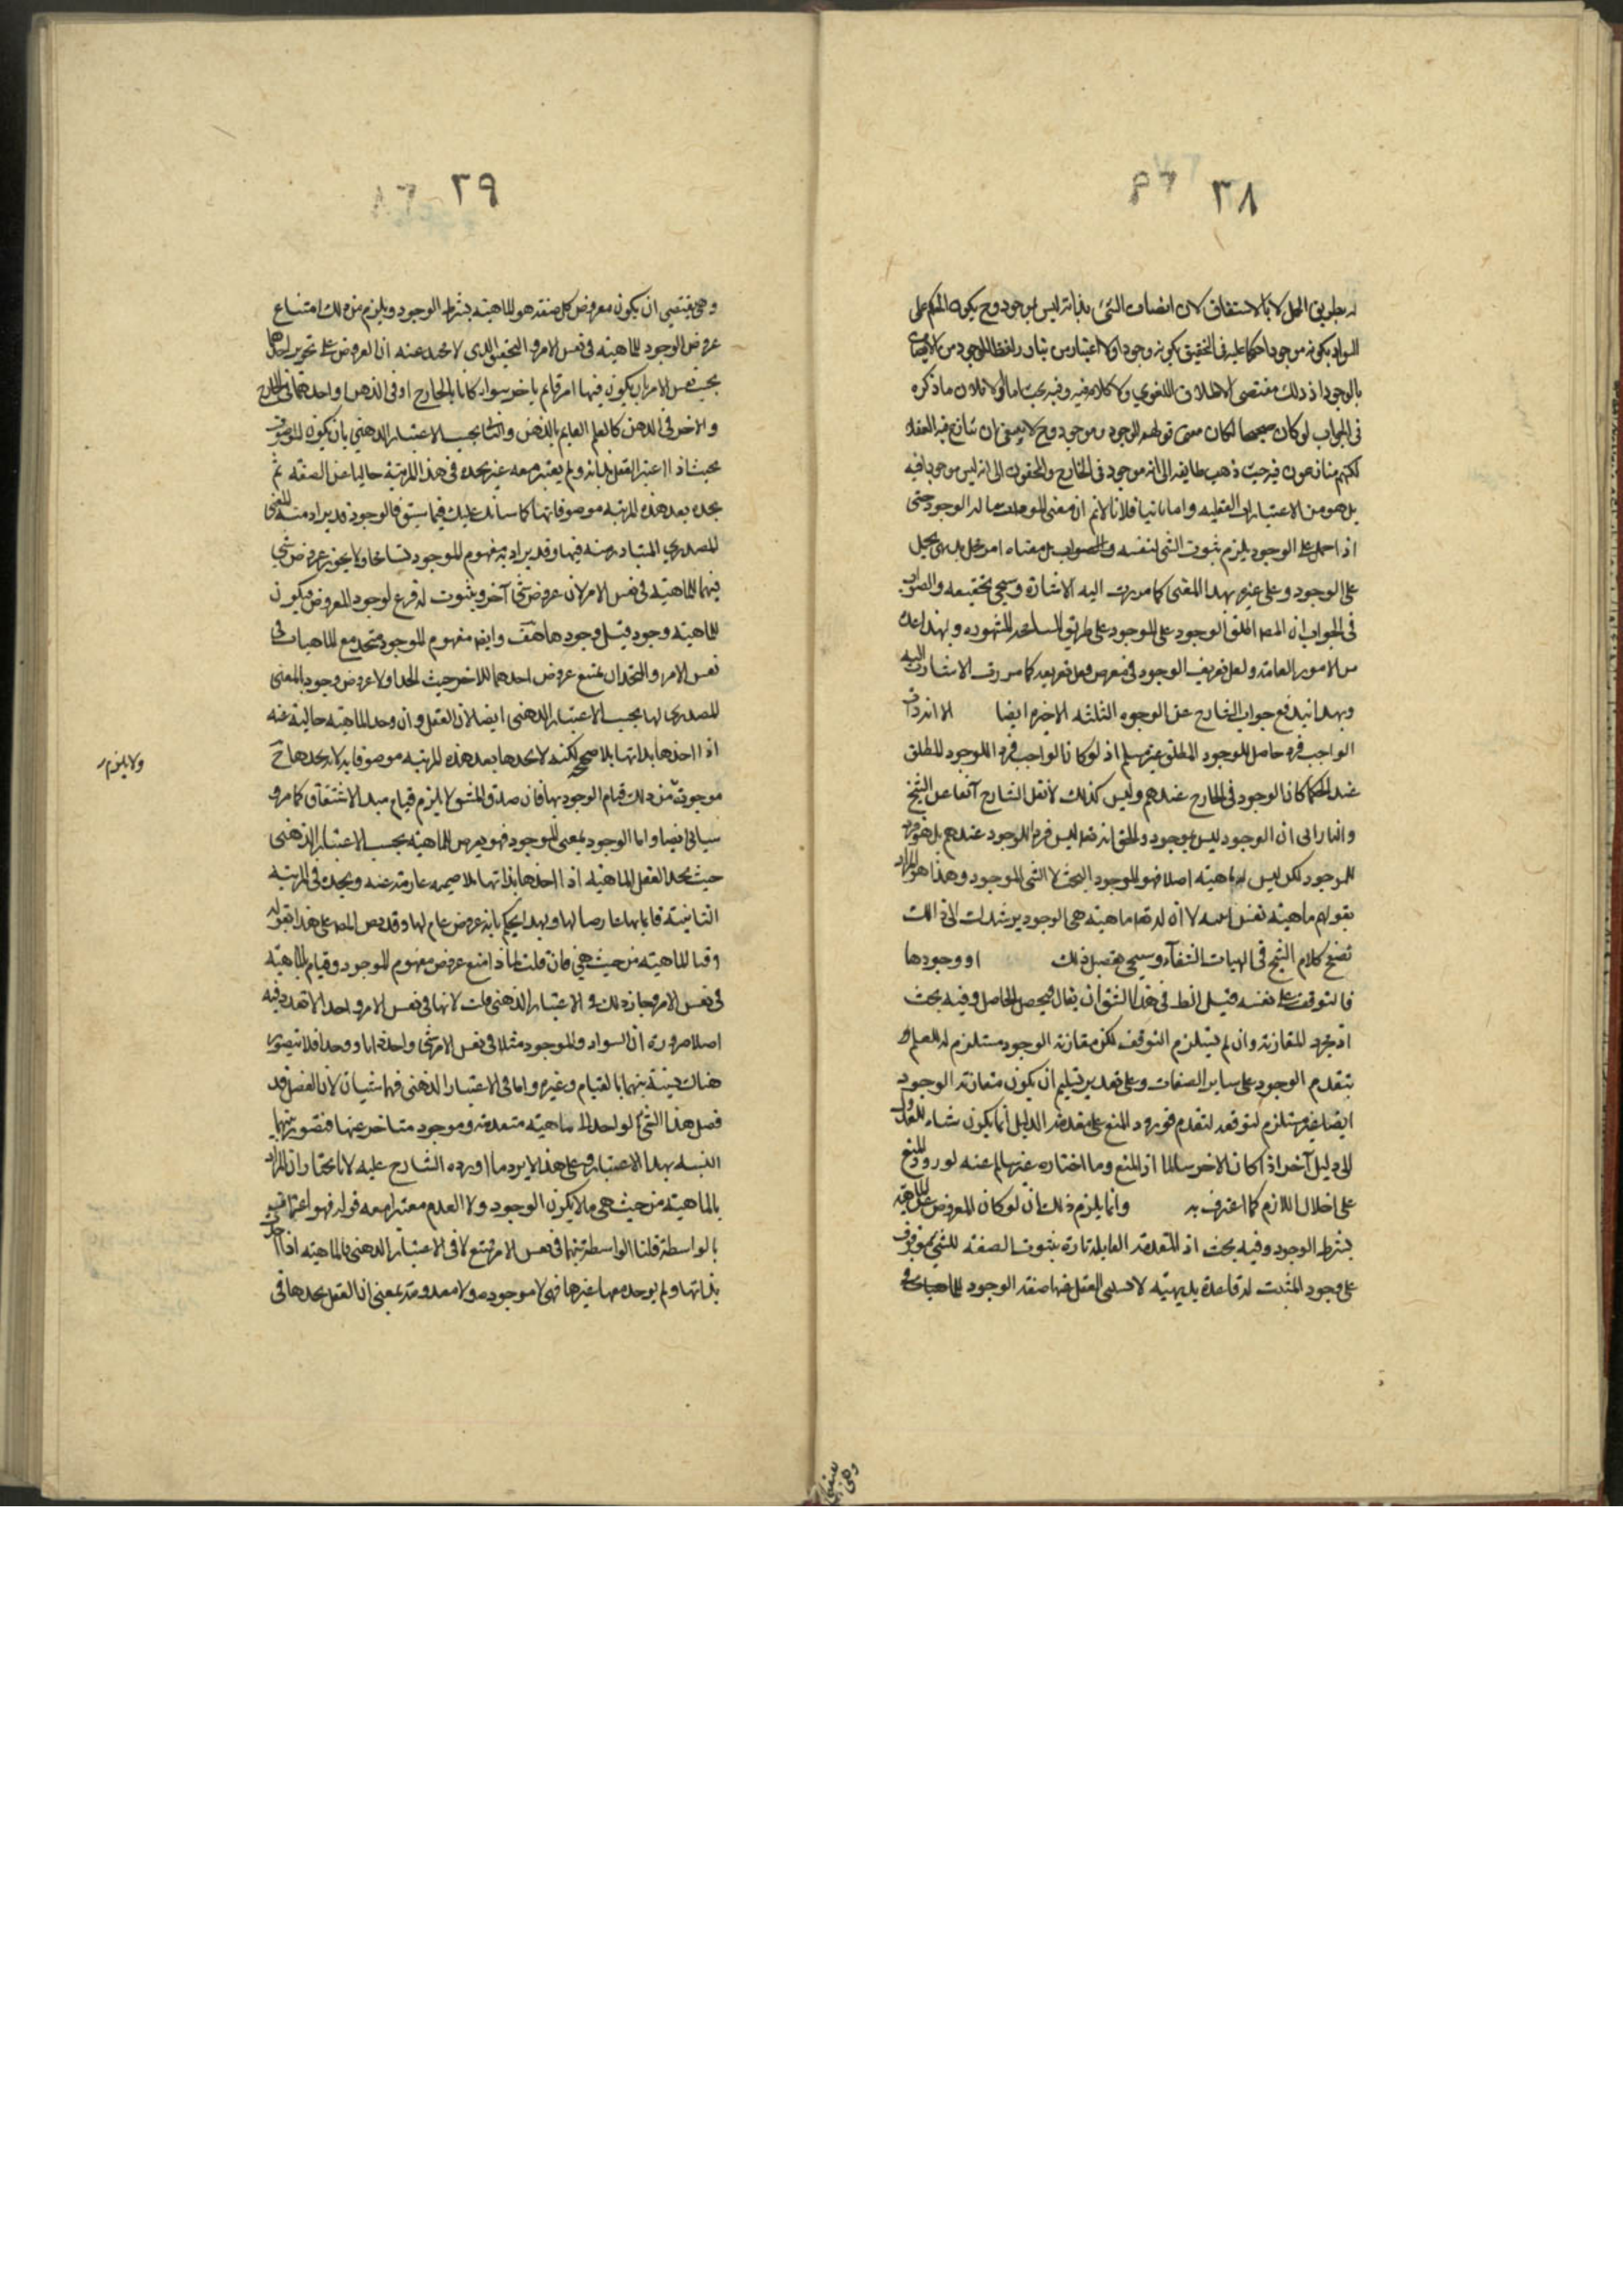 ٣٨
له بطريق الحمل لا بالاشتقاق لان اتصاف الشئ بذاته ليس بموجود وح يكون الحكم على
السواد بكونه موجودا حكما عليه فى التحقيق بكونه وجودا ولا اعتبار من تبادر لفظ الموجود من الاتصاف
بالوجود اذ ذلك مقتضى الاطلاق اللغوي ولا كلام فيه وفيه بحث اما اولا فلان ما ذكره
فى الجواب لو كان صحيحا لكان معنى قولهم الوجود موجود وح لا يصح ان تنازع فيه العقلا
لكنهم متنازعون فيه حيث ذهب طايفه الى انه موجود فى الخارج والمحققون الى انه ليس موجودا فيه
بل هو من الاعتبارات العقليه واما ثانيا فلانا لا نم ان معنى الموجود ما له الوجود حتى
اذا حمل على الوجود يلزم ثبوت الشئ لنفسه والصواب بل معناه امر يحمل
على الوجود وعلى غيره بهذا المعنى كما مرت اليه الاشارة وسيجى تحقيقه والصواب
فى الجواب ان المص اطلق الوجود على الموجود على طريق المسامحة المشهوره ولهذا عده
من الامور العامة ولعل تعريف الوجود فى معرض تعريفه كما مرت الاشارة اليه
وبهذا يندفع جواب الشارح عن الوجوه الثلثه الاخيره ايضا الا انه ذات
الواجب فرد حاصل للوجود المطلق غير مسلم اذ لو كان الواجب فرد الموجود المطلق
عند الحكما كان الوجود فى الخارج عندهم وليس كذلك لا نقل الشارح آنفا عن الشيخ
والفارابى ان الوجود ليس بموجود والحق انه تعه ليس فرد الوجود عندهم بل هو فرد
للموجود لكن ليس له ماهيته اصلا فهو الموجود البحت لا الشى الموجود وهذا هو المراد
بقولهم ماهيته نفس انيته لا ان له تعه ماهيته هى الوجود يرشدك الى ذالك
تصفح كلام الشيخ فى الهيات الشفآء وسيجى تفصيل ذلك او وجودها
فالتوقف على نفسه قيل الظ فى هذا الشق ان يقال فيحصل الحاصل وفيه بحث
اذ مجرد المقارنة وان لم يستلزم التوقف لكن مقارنة الوجود مستلزم له للعلم
بتقدم الوجود على ساير الصفات وعلى تقدير تسليم ان يكون مقارنة الوجود
ايضا غير مستلزم لتوقفه لتقدم فورود المنع على مقدمة الدليل انما يكون منشاء للعدول
الى دليل آخر اذا كان الاخر سالما عن المنع وما اختاره غير سالم عنه لورود المنع
على اخلال اللازم كما اعترف به وانما يلزم ذلك ان لو كان المعروض على الماهية
بشرط الوجود وفيه بحث اذ المقدمة القايلة تارة بثبوت الصفة للشئ موقوف
على وجود المثبت له قاعدة بديهيته لا يستثنى العقل فيها صفة الوجود
٣٩
وهى يقتضى ان يكون معروض كل صفة هو الماهيته بشرط الوجود ويلزم من ذلك امتناع
عروض الوجود للماهيته فى نفس الامر والتحقيق الذى لا محيد عنه ان العروض على نحوين احدهما
بحسب نفس الامر بان يكون فيها امر قايم باخر سواء كانا بالخارج او فى الذهن او احدهما فى الخارج
والاخر فى الذهن كالعلم القايم بالذهن والثانى بحسب الاعتبار الذهنى بان يكون الموصوف
بحيث اذا اعتبر العقل بذاته ولم يعتبر معه غيره يجده فى هذه المرتبة خاليا عن الصفه ثم
يجده بعد هذه المرتبه موصوفا بها كما سنتلو عليك فيما سبق فالوجود قد يراد منه المعنى
المصدري المتبادر منه فيها وقد يراد به مفهوم الموجود تسامحا ولا يجوز عروض شئ
فيهما للماهيته فى نفس الامر لان عروض شئ آخر وثبوته له فرع لوجود المعروض فيكون
للماهيته وجود قبل وجودها هف وايضا مفهوم الموجود متحد مع الماهيات فى
نفس الامر والمتحدان يمتنع عروض احدهما للاخر حيث اتحدا ولا عروض وجود بالمعنى
المصدرى لها بحسب الاعتبار الذهنى ايضا لان العقل وان وجد الماهيته خالية عنه
اذا اخذها بذاتها بلا ضميمة لكنه لا يجدها بعد هذه المرتبه موصوفا به لانه يجدها ح
موجودة من ذلك قيام الوجود بها فان صدق المشتق لا يلزم قيام مبدء الاشتقاق كما مر و
سياتى ايضا واما الوجود بمعنى الموجود فهو يعرض الماهيته بحسب الاعتبار الذهنى
حيث يجد العقل الماهيته اذا اخذها بذاتها بلا ضميمه عارية عنه ويجده فى المرتبه
الثانية قايما بها عارضا لها وبهذا يحكم بانه عروض عام لها وقد نص المص على هذا بقوله
وقيا للماهيته من حيث هى فان قلت لماذا امتنع عروض مفهوم الموجود وقيام للماهيته
فى نفس الامر وجاز ذلك فى الاعتبار الذهنى قلت لانها فى نفس الامر واحد لا تعدد فيه
اصلا ضرورة ان السواد والموجود مثلا فى نفس الامر شئ واحد ذاتا ووجودا فلا يتصور
هناك نسبة بينهما بالقيام وغيره واما فى الاعتبار الذهنى فهما شيئان لان العقل قد
فصل هذا الشئ الواحد الى ماهيته متقدمة وموجود متاخر عنها فتصور بينهما
النسبه بهذا الاعتبار وعلى هذا لا يرد ما اورده الشارح عليه لانا نختار ان المراد
بالماهيته من حيث هى ما لا يكون الوجود ولا العدم معتبرا معه قوله فهو اعتراف
بالواسطة قلنا الواسطة بينهما فى نفس الامر ممتنع لا فى الاعتبار الذهنى فالماهيته اذا اخذ
بذاتها ولم يوجد معها غيرها فهى لا موجوده ولا معدومة بمعنى ان العقل يجدها فى
ولا يلزم